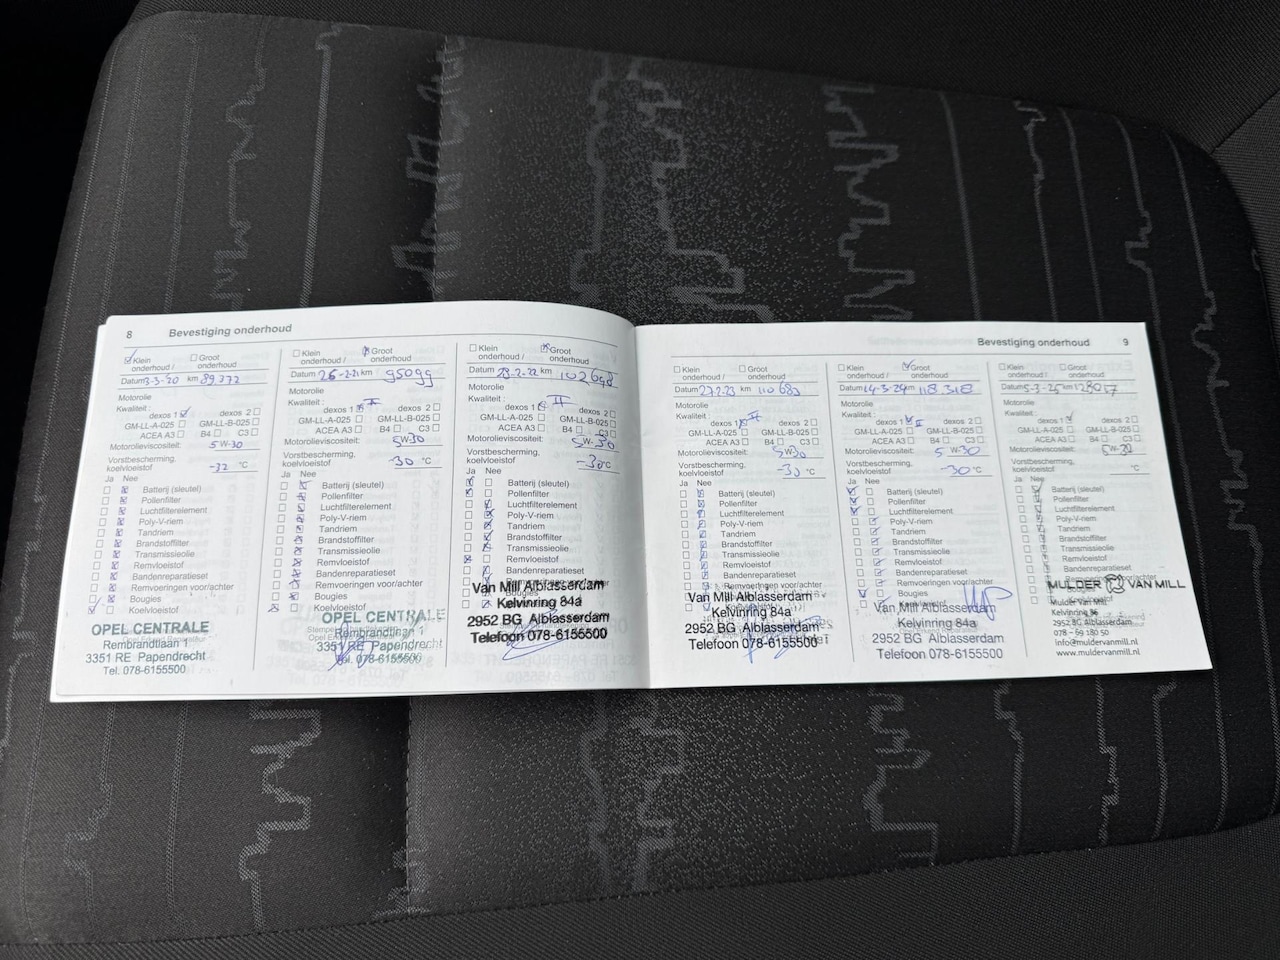 8 Bevestiging onderhoud
Klein onderhoud / Groot onderhoud
Datum 3-3-20 km 89.772
Motorolie
Kwaliteit :
dexos 1 dexos 2
GM-LL-A-025 GM-LL-B-025
ACEA A3 B4 C3
Motorolieviscositeit: 5W-30
Vorstbescherming,
koelvloeistof -32 °C
Ja Nee
Batterij (sleutel)
Pollenfilter
Luchtfilterelement
Poly-V-riem
Tandriem
Brandstoffilter
Transmissieolie
Remvloeistof
Bandenreparatieset
Remvoeringen voor/achter
Bougies
Koelvloeistof
OPEL CENTRALE
Rembrandtlaan 1
3351 RE Papendrecht
Tel. 078-6155500
Klein onderhoud / Groot onderhoud
Datum 26-2-21 km 95099
Motorolie
Kwaliteit :
dexos 1 II dexos 2
GM-LL-A-025 GM-LL-B-025
ACEA A3 B4 C3
Motorolieviscositeit: 5W30
Vorstbescherming,
koelvloeistof -30 °C
Ja Nee
Batterij (sleutel)
Pollenfilter
Luchtfilterelement
Poly-V-riem
Tandriem
Brandstoffilter
Transmissieolie
Remvloeistof
Bandenreparatieset
Remvoeringen voor/achter
Bougies
Koelvloeistof
OPEL CENTRALE
Rembrandtlaan 1
3351 RE Papendrecht
Tel. 078-6155500
Klein onderhoud / Groot onderhoud
Datum 28-2-22 km 102698
Motorolie
Kwaliteit :
dexos 1 II dexos 2
GM-LL-A-025 GM-LL-B-025
ACEA A3 B4 C3
Motorolieviscositeit: 5W-30
Vorstbescherming,
koelvloeistof -30 °C
Ja Nee
Batterij (sleutel)
Pollenfilter
Luchtfilterelement
Poly-V-riem
Tandriem
Brandstoffilter
Transmissieolie
Remvloeistof
Bandenreparatieset
Bougies
Van Mill Alblasserdam
Kelvinring 84a
2952 BG Alblasserdam
Telefoon 078-6155500
Bevestiging onderhoud 9
Klein onderhoud / Groot onderhoud
Datum 27-2-23 km 110683
Motorolie
Kwaliteit :
dexos 1 II dexos 2
GM-LL-A-025 GM-LL-B-025
ACEA A3 B4 C3
Motorolieviscositeit: 5W30
Vorstbescherming,
koelvloeistof -30 °C
Ja Nee
Batterij (sleutel)
Pollenfilter
Luchtfilterelement
Poly-V-riem
Tandriem
Brandstoffilter
Transmissieolie
Remvloeistof
Bandenreparatieset
Remvoeringen voor/achter
Van Mill Alblasserdam
Kelvinring 84a
2952 BG Alblasserdam
Telefoon 078-6155500
Klein onderhoud / Groot onderhoud
Datum 14-3-24 km 118.318
Motorolie
Kwaliteit :
dexos 1 II dexos 2
GM-LL-A-025 GM-LL-B-025
ACEA A3 B4 C3
Motorolieviscositeit: 5W-30
Vorstbescherming,
koelvloeistof -30 °C
Ja Nee
Batterij (sleutel)
Pollenfilter
Luchtfilterelement
Poly-V-riem
Tandriem
Brandstoffilter
Transmissieolie
Remvloeistof
Bandenreparatieset
Remvoeringen voor/achter
Bougies
Van Mill Alblasserdam
Kelvinring 84a
2952 BG Alblasserdam
Telefoon 078-6155500
Klein onderhoud / Groot onderhoud
Datum 5-3-25 km 128057
Motorolie
Kwaliteit :
dexos 1 dexos 2
GM-LL-A-025 GM-LL-B-025
ACEA A3 B4 C3
Motorolieviscositeit:
Vorstbescherming,
koelvloeistof °C
Ja Nee
Batterij (sleutel)
Pollenfilter
Luchtfilterelement
Poly-V-riem
Tandriem
Brandstoffilter
Transmissieolie
Remvloeistof
Bandenreparatieset
MULDER VAN MILL
Mulder Van Mill
Kelvinring
2952 BG Alblasserdam
078 - 69 180 50
info@muldervanmill.nl
www.muldervanmill.nl